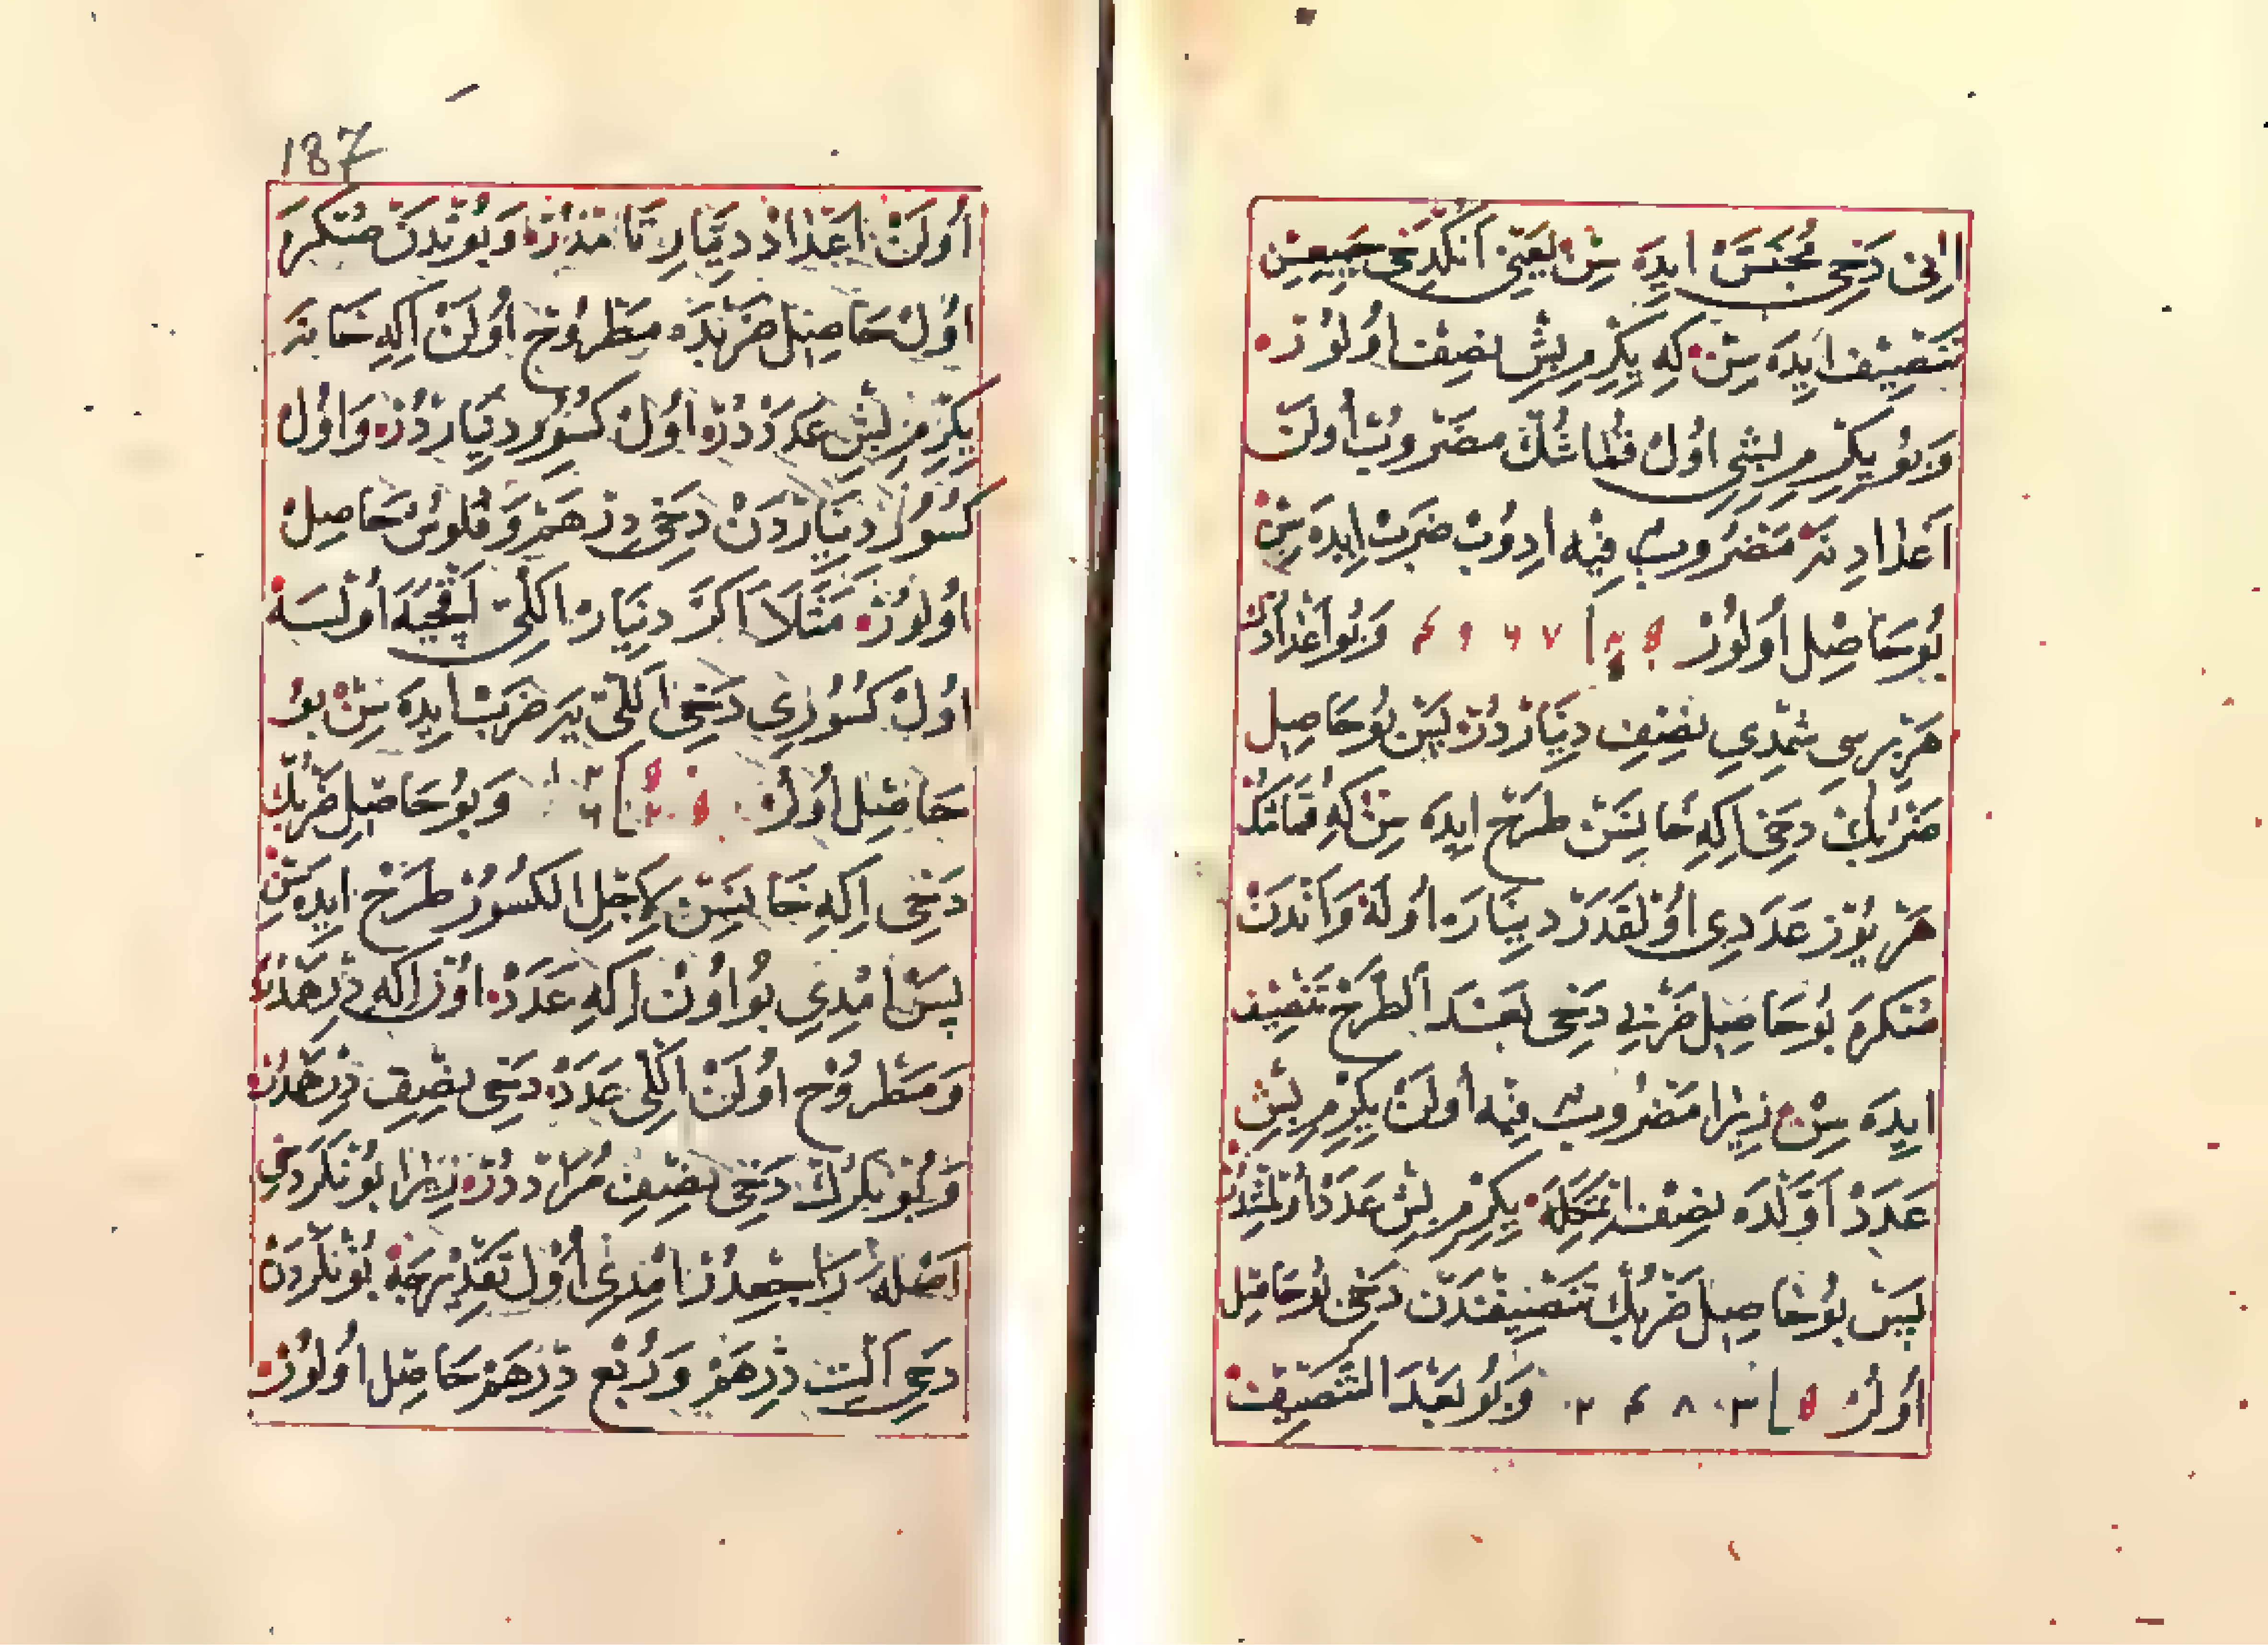 انی دخی مجنس ایده سن یعنی انکدخی جمیعین
تنصیف ایده سن که یکرم بش نصف اولور
و بو یکرم بشی اول قماشک مضروب اولن
اعداد نه مضروب فیه ادوب ضرب ایده سن
بو حاصل اولور و بو اعدادک
هر بر سی شمدی نصف دیناردر پس بو حاصل
ضربک دخی اکه خانه سن طرح ایده سن که قماشک
هر یوز عددی اولقدر دیناره اوله و اندن
صکره بو حاصل ضربی دخی بعد الطرح تنصیف
ایده سن زیرا مضروب فیه اولن یکرم بش
عدد اولده نصف یکرم بش عدد
پس بو حاصل ضربک تنصیفندن دخی بو حاصل
اولر ۲ ۴ ۸ ۳ و بو بعد التنصیف
187
اولن اعداد دینار و بوندن صکره
اول حاصل ضربده مطروح اولن اکه خانه
یکرم بش عدددر اول کسور دیناردر و اول
کسور دیناردن دخی درهم و فلوس حاصل
اولور مثلا اکر دینار اللی اقچیه اولسه
اول کسوری دخی اللی یه ضرب ایده سن بو
حاصل اولر و بو حاصل ضربک
دخی اکه خانه سن لاجل الکسور طرح ایده سن
پس امدی بو اون اکه عدد اوزاکه درهمدر
و مطروح اولن اللی عدد دخی نصف درهمدر
و بونکرک دخی نصف مراددر زیرا بونکر دخی
اصله راجعدر امدی اول تقدیرجه بونکردن
دخی الت درهم و ربع درهم حاصل اولور